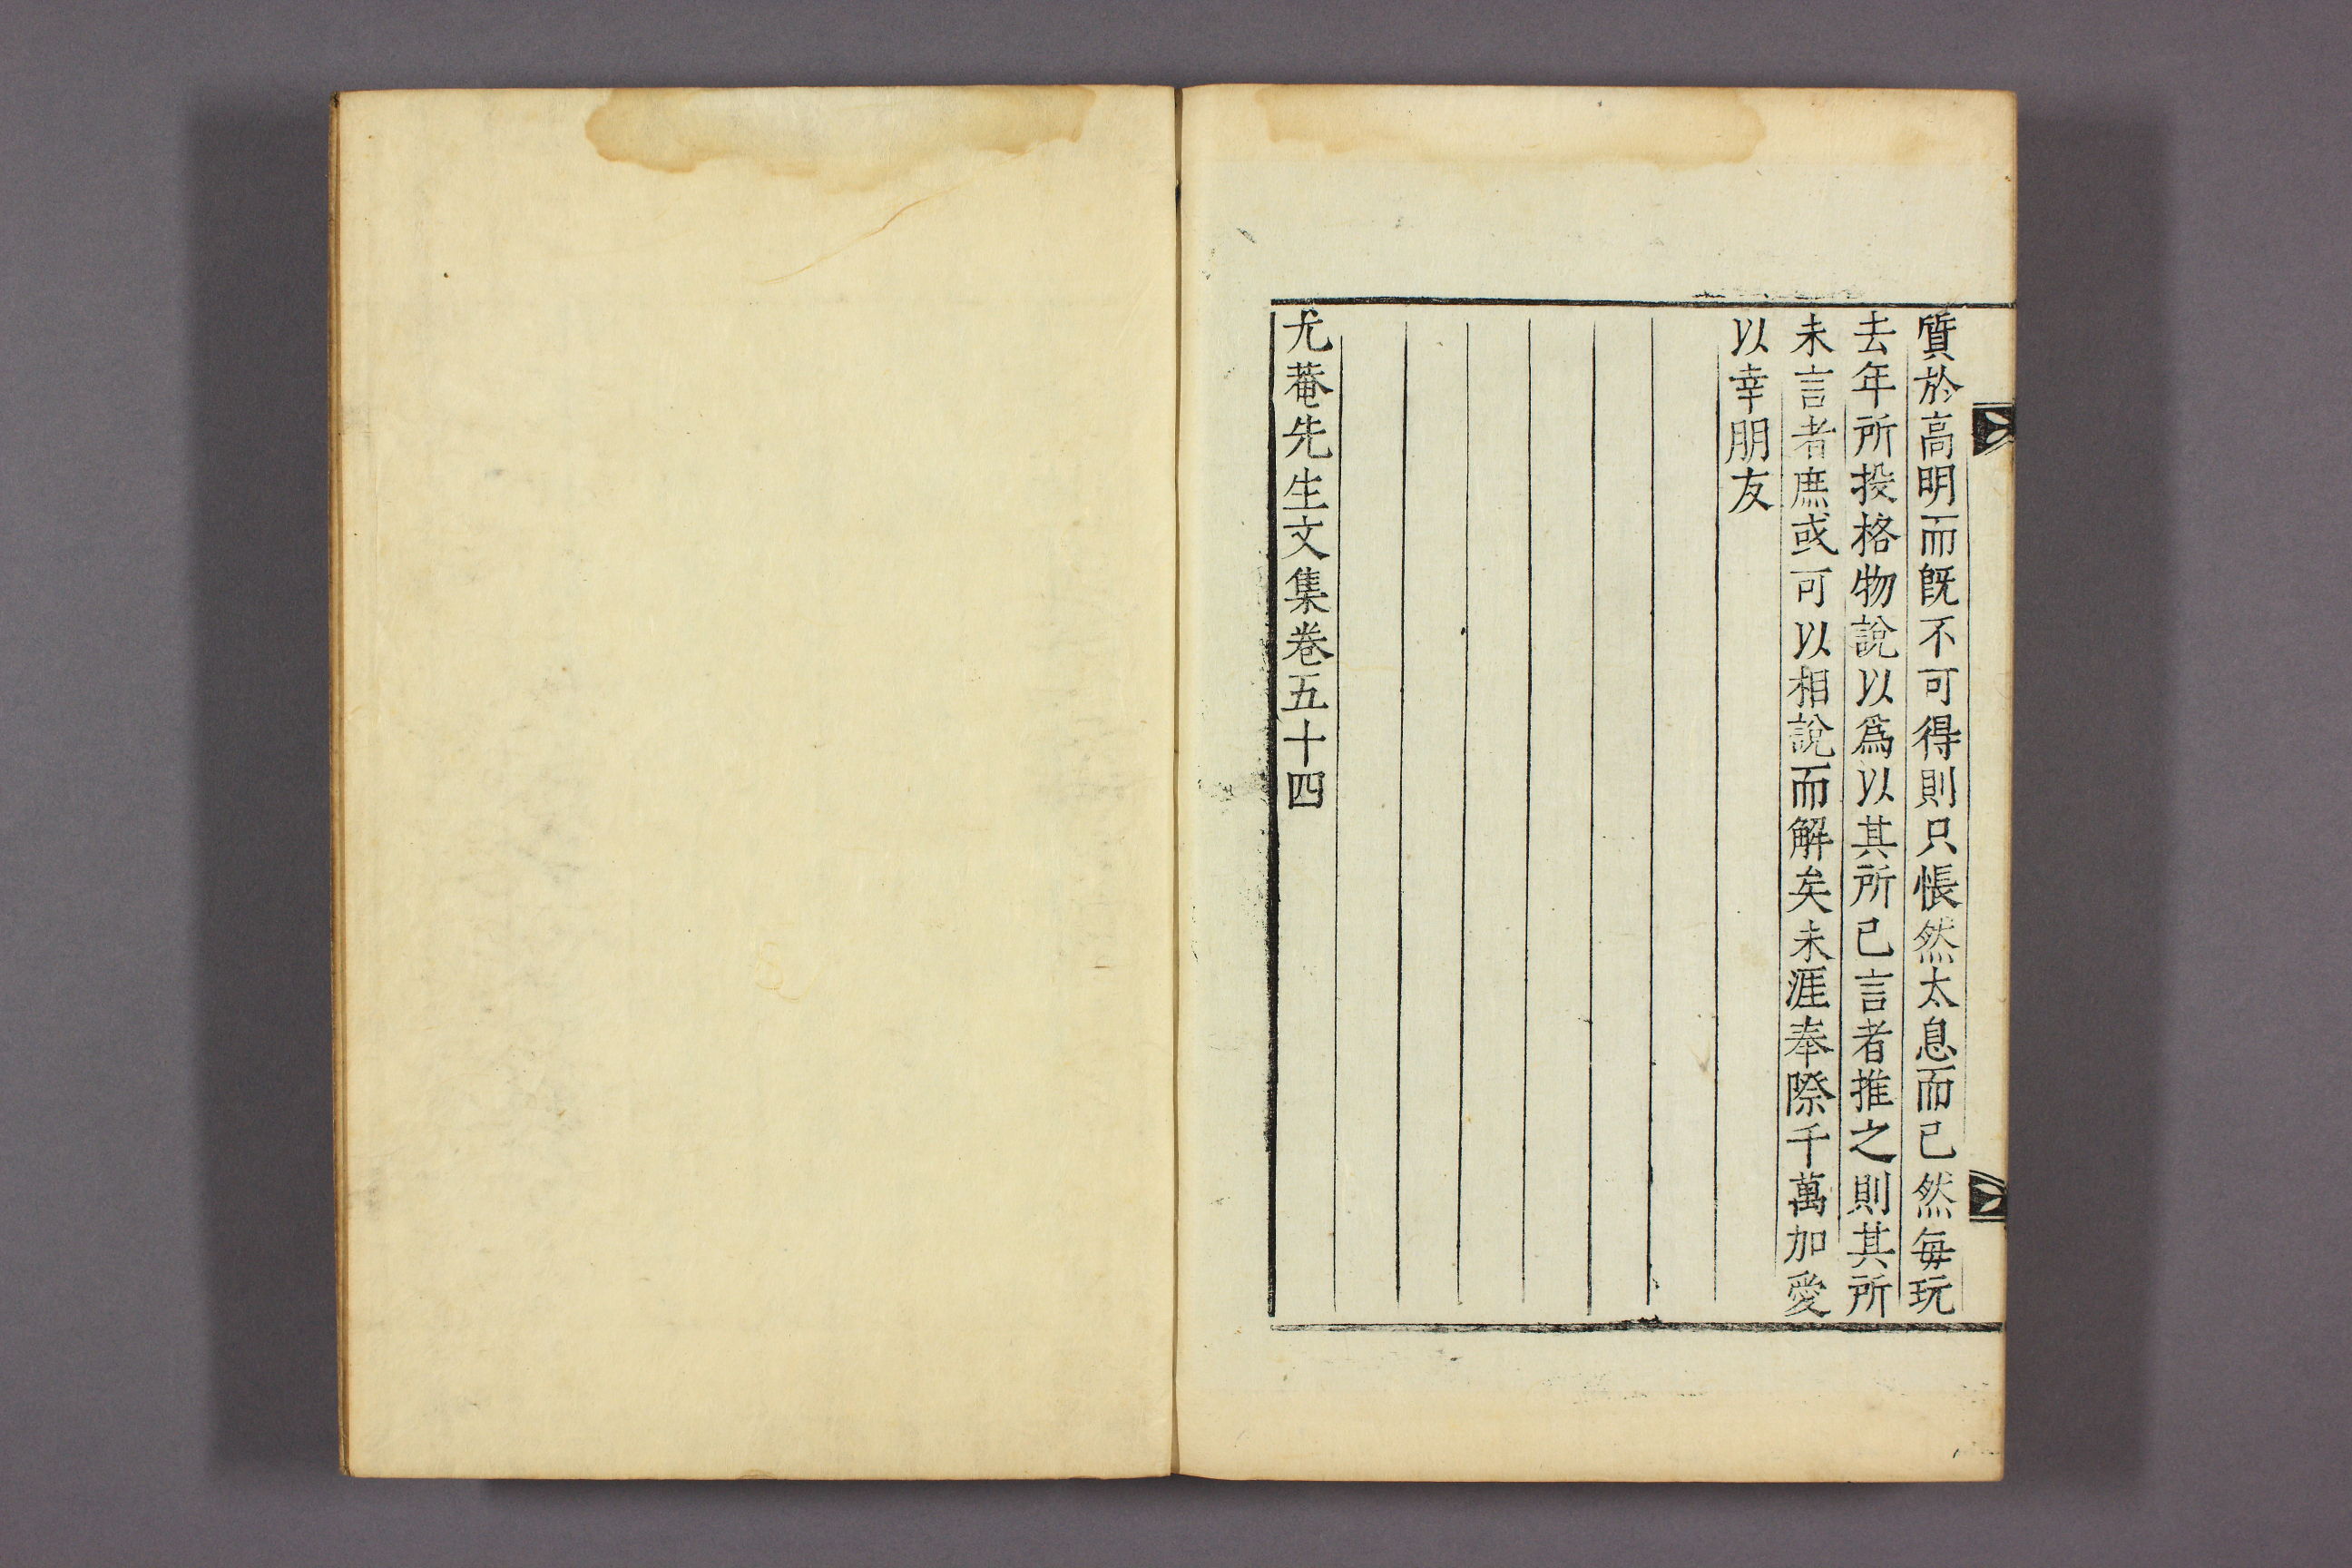 質於高明而旣不可得則只悵然太息而已然每玩
去年所投格物說以爲以其所已言者推之則其所
未言者庶或可以相說而解矣未涯奉際千萬加愛
以幸朋友
尤菴先生文集卷五十四